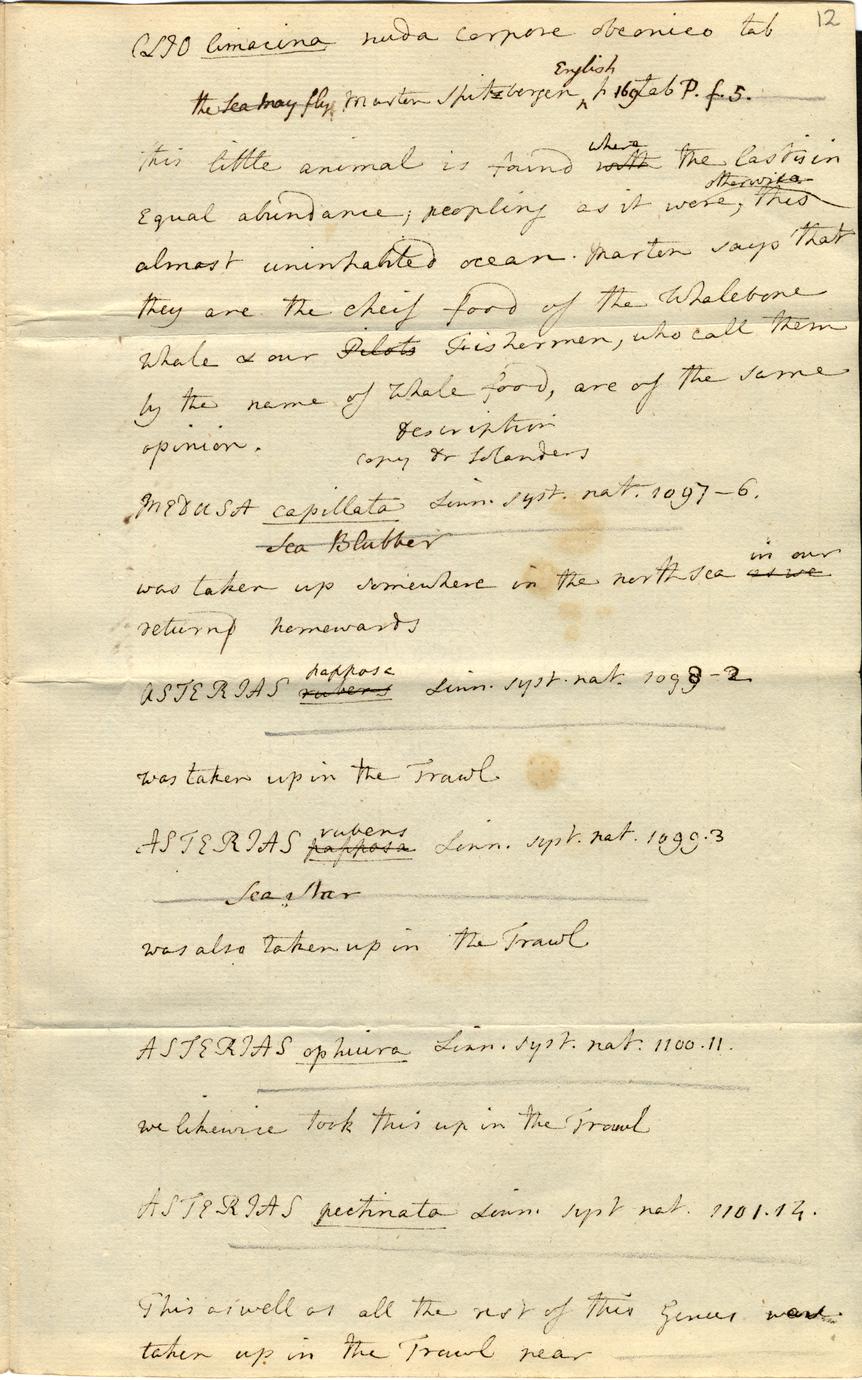 12
CLIO limacina nuda corpore obconico tab
the Sea may fly Marten Spitzbergen English p 169 tab P. f. 5.
this little animal is found with where the last is in
Equal abundance; peopling as it were, this otherwise
almost uninhabited ocean. Marten says that
they are the cheif food of the Whalebone
Whale & our Pilots Fishermen, who call them
by the name of Whale food, are of the same
opinion.
description
copy Dr Solanders
MEDUSA capillata Linn. syst. nat. 1097-6.
Sea Blubber
was taken up somewhere in the north sea as we in our
return homewards
ASTERIAS rubens papposa Linn. syst. nat. 1098-2
was taken up in the Trawl
ASTERIAS papposa rubens Linn. syst. nat. 1099.3
Sea Star
was also taken up in the Trawl
ASTERIAS ophiura Linn. syst. nat. 1100.11.
we likewise took this up in the Trawl
ASTERIAS pectinata Linn. syst nat. 1101.14.
This aswell as all the rest of this Genus
taken up in the Trawl near